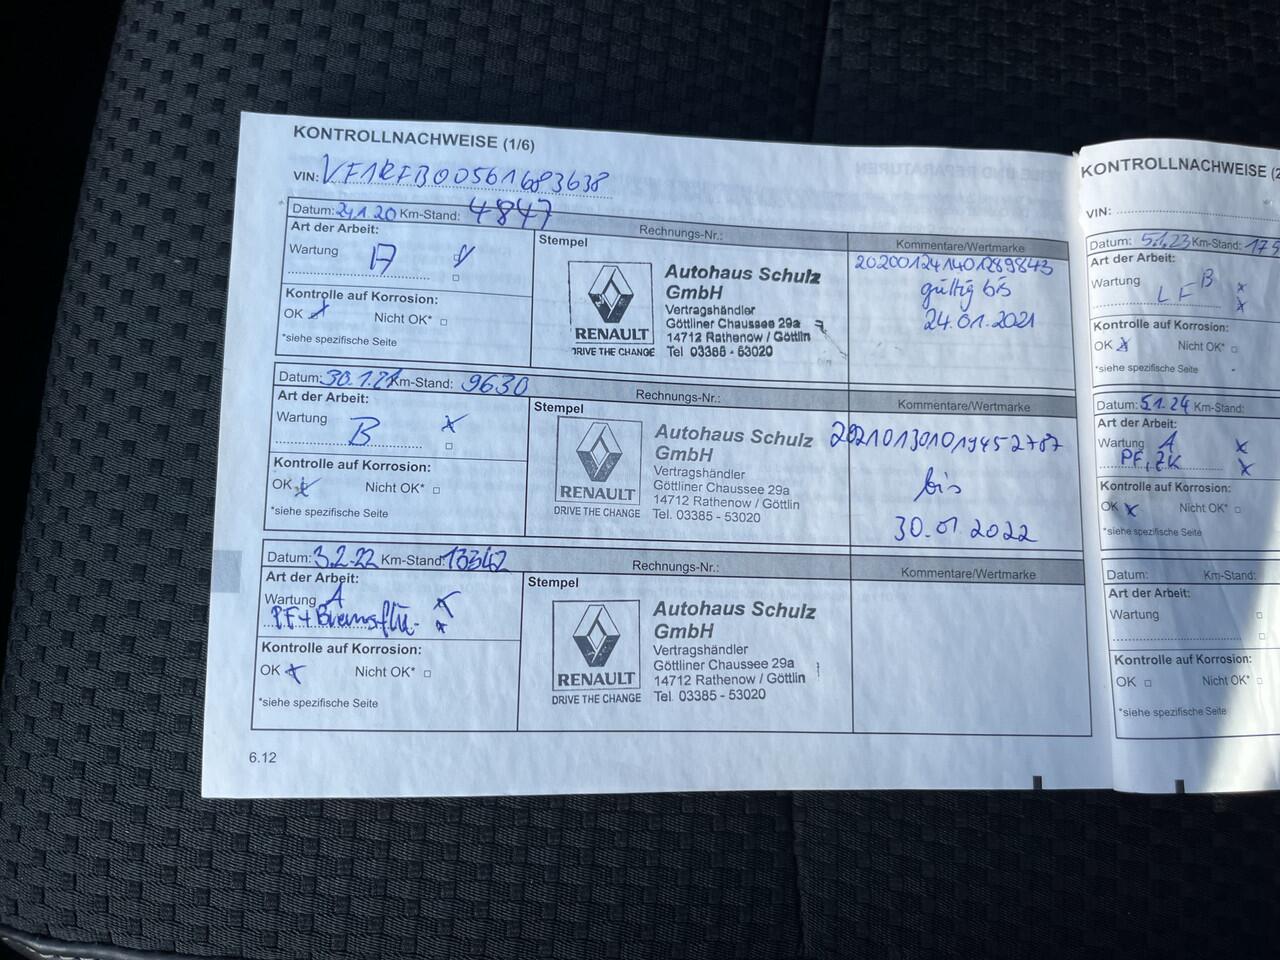 KONTROLLNACHWEISE (1/6)
VIN: VF1RFB00561683638
Datum: 24.1.20 Km-Stand: 4847
Rechnungs-Nr.:
Art der Arbeit:
Wartung A
Kontrolle auf Korrosion:
OK Nicht OK*
*siehe spezifische Seite
Stempel
RENAULT
DRIVE THE CHANGE
Autohaus Schulz
GmbH
Vertragshändler
Göttliner Chaussee 29a
14712 Rathenow / Göttlin
Tel 03385 - 53020
Kommentare/Wertmarke
202001241401289843
gültig bis
24.01.2021
Datum: 30.1.21 Km-Stand: 9630
Rechnungs-Nr.:
Art der Arbeit:
Wartung B
Kontrolle auf Korrosion:
OK Nicht OK*
*siehe spezifische Seite
Stempel
RENAULT
DRIVE THE CHANGE
Autohaus Schulz
GmbH
Vertragshändler
Göttliner Chaussee 29a
14712 Rathenow / Göttlin
Tel. 03385 - 53020
Kommentare/Wertmarke
20210130101945 2787
bis
30.01.2022
Datum: 3.2.22 Km-Stand: 13342
Rechnungs-Nr.:
Art der Arbeit:
Wartung A
PF + Bremsflü.
Kontrolle auf Korrosion:
OK Nicht OK*
*siehe spezifische Seite
Stempel
RENAULT
DRIVE THE CHANGE
Autohaus Schulz
GmbH
Vertragshändler
Göttliner Chaussee 29a
14712 Rathenow / Göttlin
Tel. 03385 - 53020
Kommentare/Wertmarke
6.12
KONTROLLNACHWEISE (2
VIN:
Datum: 5.1.23 Km-Stand:
Art der Arbeit:
Wartung B
LF
Kontrolle auf Korrosion:
OK Nicht OK*
*siehe spezifische Seite
Datum: 5.1.24 Km-Stand:
Art der Arbeit:
Wartung A
PF, ZK
Kontrolle auf Korrosion:
OK Nicht OK*
*siehe spezifische Seite
Datum: Km-Stand:
Art der Arbeit:
Wartung
Kontrolle auf Korrosion:
OK Nicht OK*
*siehe spezifische Seite